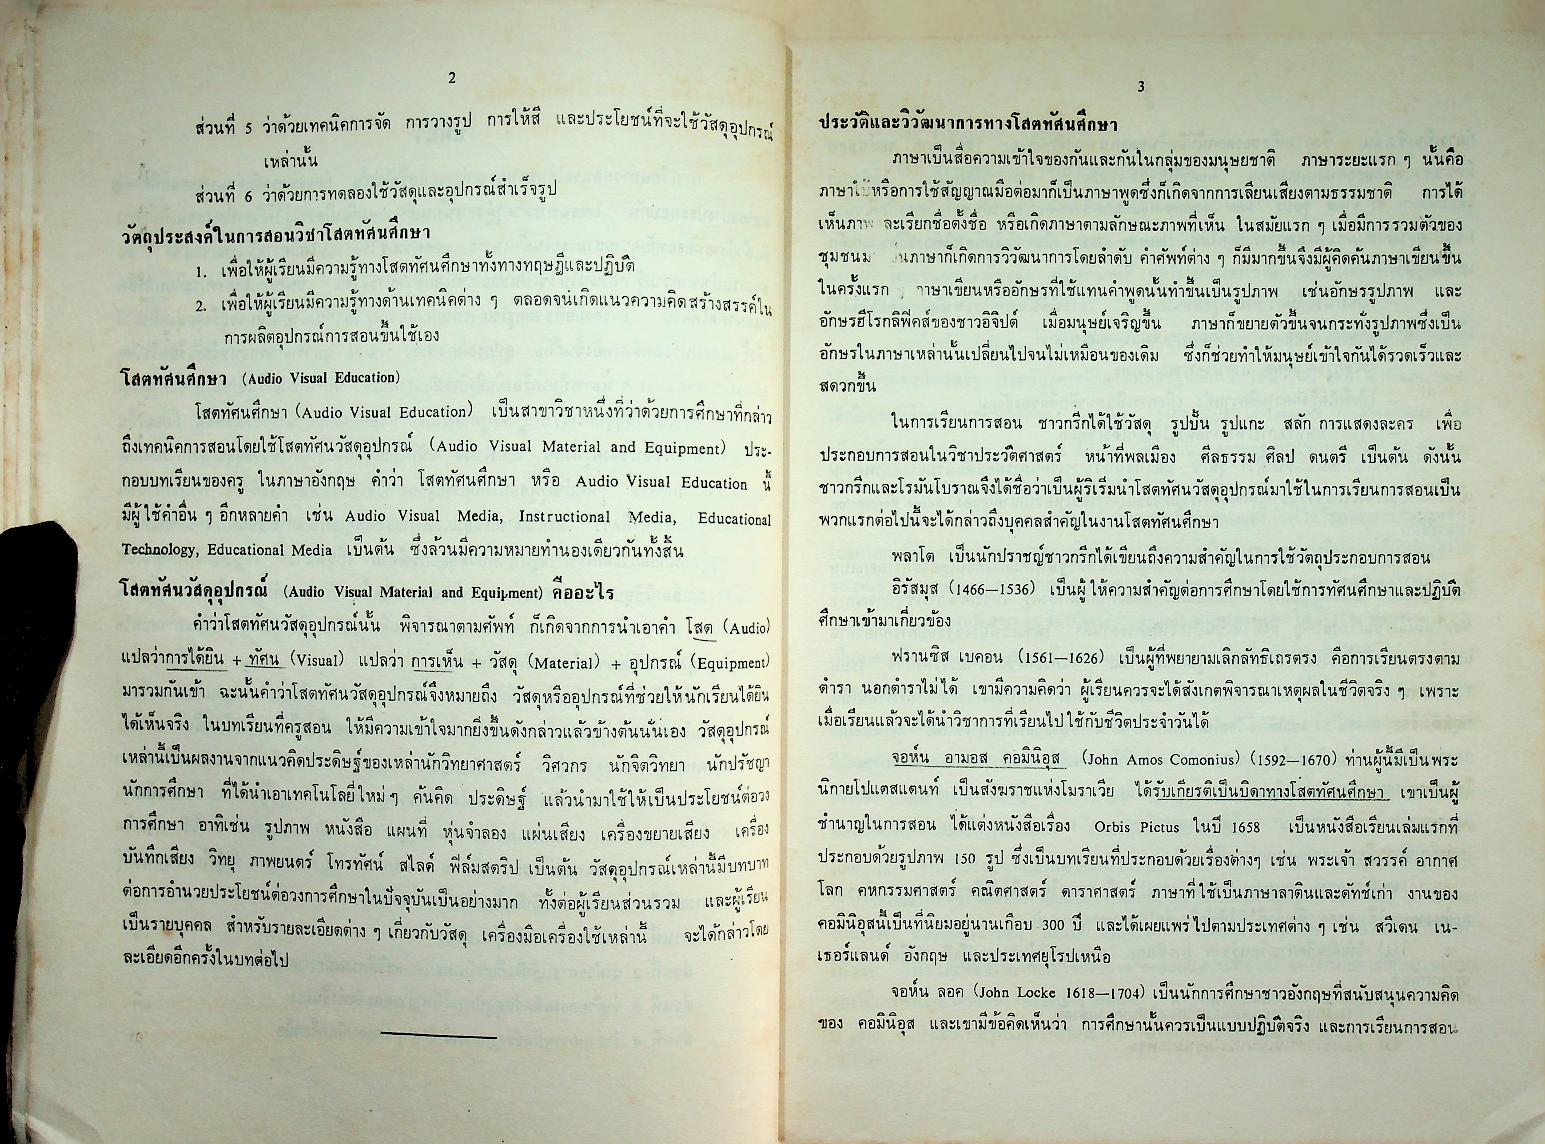 2
ส่วนที่ 5 ว่าด้วยเทคนิคการจัด การวางรูป การให้สี และประโยชน์ที่จะใช้วัสดุอุปกรณ์
เหล่านั้น
ส่วนที่ 6 ว่าด้วยการทดลองใช้วัสดุและอุปกรณ์สำเร็จรูป
วัตถุประสงค์ในการสอนวิชาโสตทัศนศึกษา
1. เพื่อให้ผู้เรียนมีความรู้ทางโสตทัศนศึกษาทั้งทางทฤษฎีและปฏิบัติ
2. เพื่อให้ผู้เรียนมีความรู้ทางด้านเทคนิคต่าง ๆ ตลอดจนเกิดแนวความคิดสร้างสรรค์ใน
การผลิตอุปกรณ์การสอนขึ้นใช้เอง
โสตทัศนศึกษา (Audio Visual Education)
โสตทัศนศึกษา (Audio Visual Education) เป็นสาขาวิชาหนึ่งที่ว่าด้วยการศึกษาที่กล่าว
ถึงเทคนิคการสอนโดยใช้โสตทัศนวัสดุอุปกรณ์ (Audio Visual Material and Equipment) ประ-
กอบบทเรียนของครู ในภาษาอังกฤษ คำว่า โสตทัศนศึกษา หรือ Audio Visual Education นี้
มีผู้ใช้คำอื่น ๆ อีกหลายคำ เช่น Audio Visual Media, Instructional Media, Educational
Technology, Educational Media เป็นต้น ซึ่งล้วนมีความหมายทำนองเดียวกันทั้งสิ้น
โสตทัศนวัสดุอุปกรณ์ (Audio Visual Material and Equipment) คืออะไร
คำว่าโสตทัศนวัสดุอุปกรณ์นั้น พิจารณาตามศัพท์ ก็เกิดจากการนำเอาคำ โสต (Audio)
แปลว่าการได้ยิน + ทัศน (Visual) แปลว่า การเห็น + วัสดุ (Material) + อุปกรณ์ (Equipment)
มารวมกันเข้า ฉะนั้นคำว่าโสตทัศนวัสดุอุปกรณ์จึงหมายถึง วัสดุหรืออุปกรณ์ที่ช่วยให้นักเรียนได้ยิน
ได้เห็นจริง ในบทเรียนที่ครูสอน ให้มีความเข้าใจมากยิ่งขึ้นดังกล่าวแล้วข้างต้นนั่นเอง วัสดุอุปกรณ์
เหล่านี้เป็นผลงานจากแนวคิดประดิษฐ์ของเหล่านักวิทยาศาสตร์ วิศวกร นักจิตวิทยา นักปรัชญา
นักการศึกษา ที่ได้นำเอาเทคโนโลยี่ใหม่ๆ ค้นคิด ประดิษฐ์ แล้วนำมาใช้ให้เป็นประโยชน์ต่อวง
การศึกษา อาทิเช่น รูปภาพ หนังสือ แผนที่ หุ่นจำลอง แผ่นเสียง เครื่องขยายเสียง เครื่อง
บันทึกเสียง วิทยุ ภาพยนตร์ โทรทัศน์ สไลด์ ฟิล์มสตริป เป็นต้น วัสดุอุปกรณ์เหล่านี้มีบทบาท
ต่อการอำนวยประโยชน์ต่อวงการศึกษาในปัจจุบันเป็นอย่างมาก ทั้งต่อผู้เรียนส่วนรวม และผู้เรียน
เป็นรายบุคคล สำหรับรายละเอียดต่าง ๆ เกี่ยวกับวัสดุ เครื่องมือเครื่องใช้เหล่านี้ จะได้กล่าวโดย
ละเอียดอีกครั้งในบทต่อไป
3
ประวัติและวิวัฒนาการทางโสตทัศนศึกษา
ภาษาเป็นสื่อความเข้าใจของกันและกันในกลุ่มของมนุษยชาติ ภาษาระยะแรก ๆ นั้นคือ
ภาษาใบ้หรือการใช้สัญญาณมือต่อมาก็เป็นภาษาพูดซึ่งก็เกิดจากการเลียนเสียงตามธรรมชาติ การได้
เห็นภาพ ละเรียกชื่อตั้งชื่อ หรือเกิดภาษาตามลักษณะภาพที่เห็น ในสมัยแรก ๆ เมื่อมีการรวมตัวของ
ชุมชนม นภาษาก็เกิดการวิวัฒนาการโดยลำดับ คำศัพท์ต่าง ๆ ก็มีมากขึ้นจึงมีผู้คิดค้นภาษาเขียนขึ้น
ในครั้งแรก ๆ ภาษาเขียนหรืออักษรที่ใช้แทนคำพูดนั้นทำขึ้นเป็นรูปภาพ เช่นอักษรรูปภาพ และ
อักษรฮีโรกลิฟิคส์ของชาวอิจิปต์ เมื่อมนุษย์เจริญขึ้น ภาษาก็ขยายตัวขึ้นจนกระทั่งรูปภาพซึ่งเป็น
อักษรในภาษาเหล่านั้นเปลี่ยนไปจนไม่เหมือนของเดิม ซึ่งก็ช่วยทำให้มนุษย์เข้าใจกันได้รวดเร็วและ
สดวกขึ้น
ในการเรียนการสอน ชาวกรีกได้ใช้วัสดุ รูปปั้น รูปแกะ สลัก การแสดงละคร เพื่อ
ประกอบการสอนในวิชาประวัติศาสตร์ หน้าที่พลเมือง ศีลธรรม ศิลป ดนตรี เป็นต้น ดังนั้น
ชาวกรีกและโรมันโบราณจึงได้ชื่อว่าเป็นผู้ริเริ่มนำโสตทัศนวัสดุอุปกรณ์มาใช้ในการเรียนการสอนเป็น
พวกแรกต่อไปนี้จะได้กล่าวถึงบุคคลสำคัญในงานโสตทัศนศึกษา
พลาโต เป็นนักปราชญ์ชาวกรีกได้เขียนถึงความสำคัญในการใช้วัตถุประกอบการสอน
อิรัสมุส (1466—1536) เป็นผู้ให้ความสำคัญต่อการศึกษาโดยใช้การทัศนศึกษาและปฏิบัติ
ศึกษาเข้ามาเกี่ยวข้อง
ฟรานซิส เบคอน (1561—1626) เป็นผู้ที่พยายามเลิกลัทธิเถรตรง คือการเรียนตรงตาม
ตำรา นอกตำราไม่ได้ เขามีความคิดว่า ผู้เรียนควรจะได้สังเกตพิจารณาเหตุผลในชีวิตจริง ๆ เพราะ
เมื่อเรียนแล้วจะได้นำวิชาการที่เรียนไปใช้กับชีวิตประจำวันได้
จอห์น อามอส คอมินิอุส (John Amos Comonius) (1592—1670) ท่านผู้นี้มีเป็นพระ
นิกายโปแตสแตนท์ เป็นสังฆราชแห่งโมราเวีย ได้รับเกียรติเป็นบิดาทางโสตทัศนศึกษา เขาเป็นผู้
ชำนาญในการสอน ได้แต่งหนังสือเรื่อง Orbis Pictus ในปี 1658 เป็นหนังสือเรียนเล่มแรกที่
ประกอบด้วยรูปภาพ 150 รูป ซึ่งเป็นบทเรียนที่ประกอบด้วยเรื่องต่างๆ เช่น พระเจ้า สวรรค์ อากาศ
โลก คหกรรมศาสตร์ คณิตศาสตร์ ดาราศาสตร์ ภาษาที่ใช้เป็นภาษาลาตินและดัทช์เก่า งานของ
คอมินิอุสนี้เป็นที่นิยมอยู่นานเกือบ 300 ปี และได้เผยแพร่ไปตามประเทศต่าง ๆ เช่น สวีเดน เน-
เธอร์แลนด์ อังกฤษ และประเทศยุโรปเหนือ
จอห์น ลอค (John Locke 1618—1704) เป็นนักการศึกษาชาวอังกฤษที่สนับสนุนความคิด
ของ คอมินิอุส และเขามีข้อคิดเห็นว่า การศึกษานั้นควรเป็นแบบปฏิบัติจริง และการเรียนการสอน